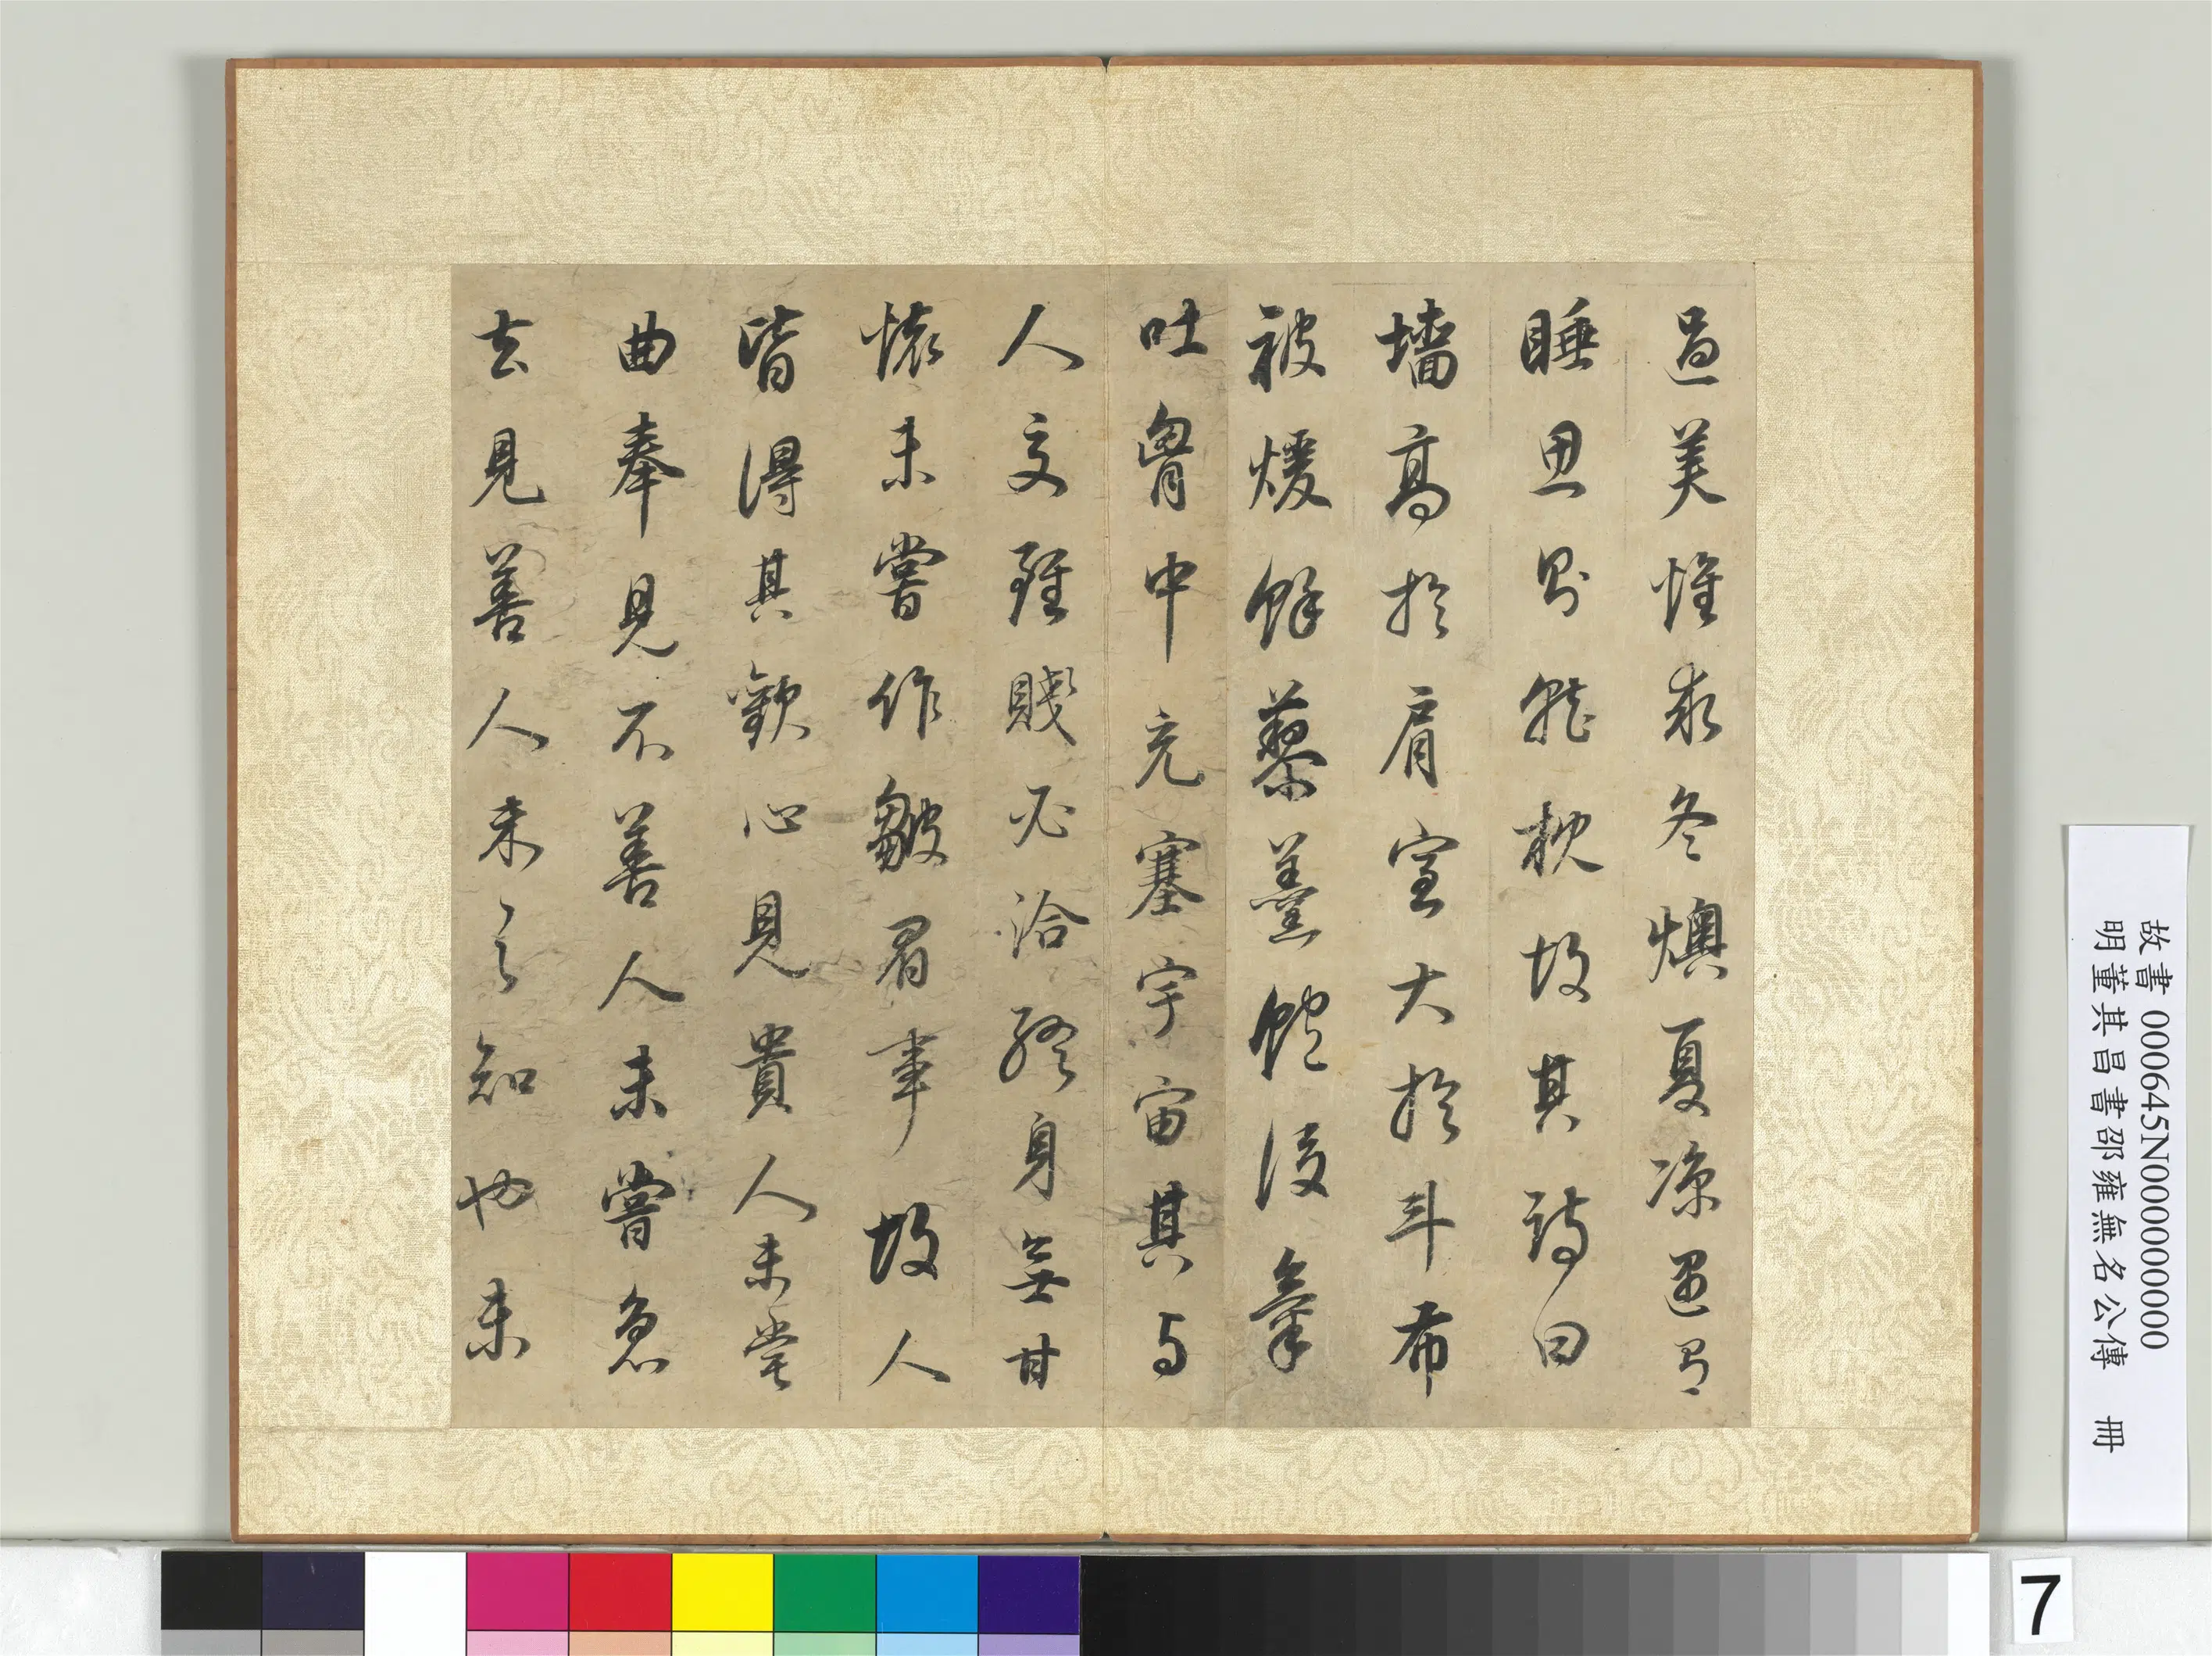 過美惟求冬燠夏涼遇有
睡思則就枕故其詩曰
墻高於肩室大於斗布
被煖餘藜羹飽後氣
吐胷中充塞宇宙其与
人交雖賤必洽終身無甘
懷未嘗作皺眉事故人
皆得其歡心見貴人未嘗
曲奉見不善人未嘗急
去見善人未之知也未
故書 000645N000000000
明董其昌書邵雍無名公傳 冊
7